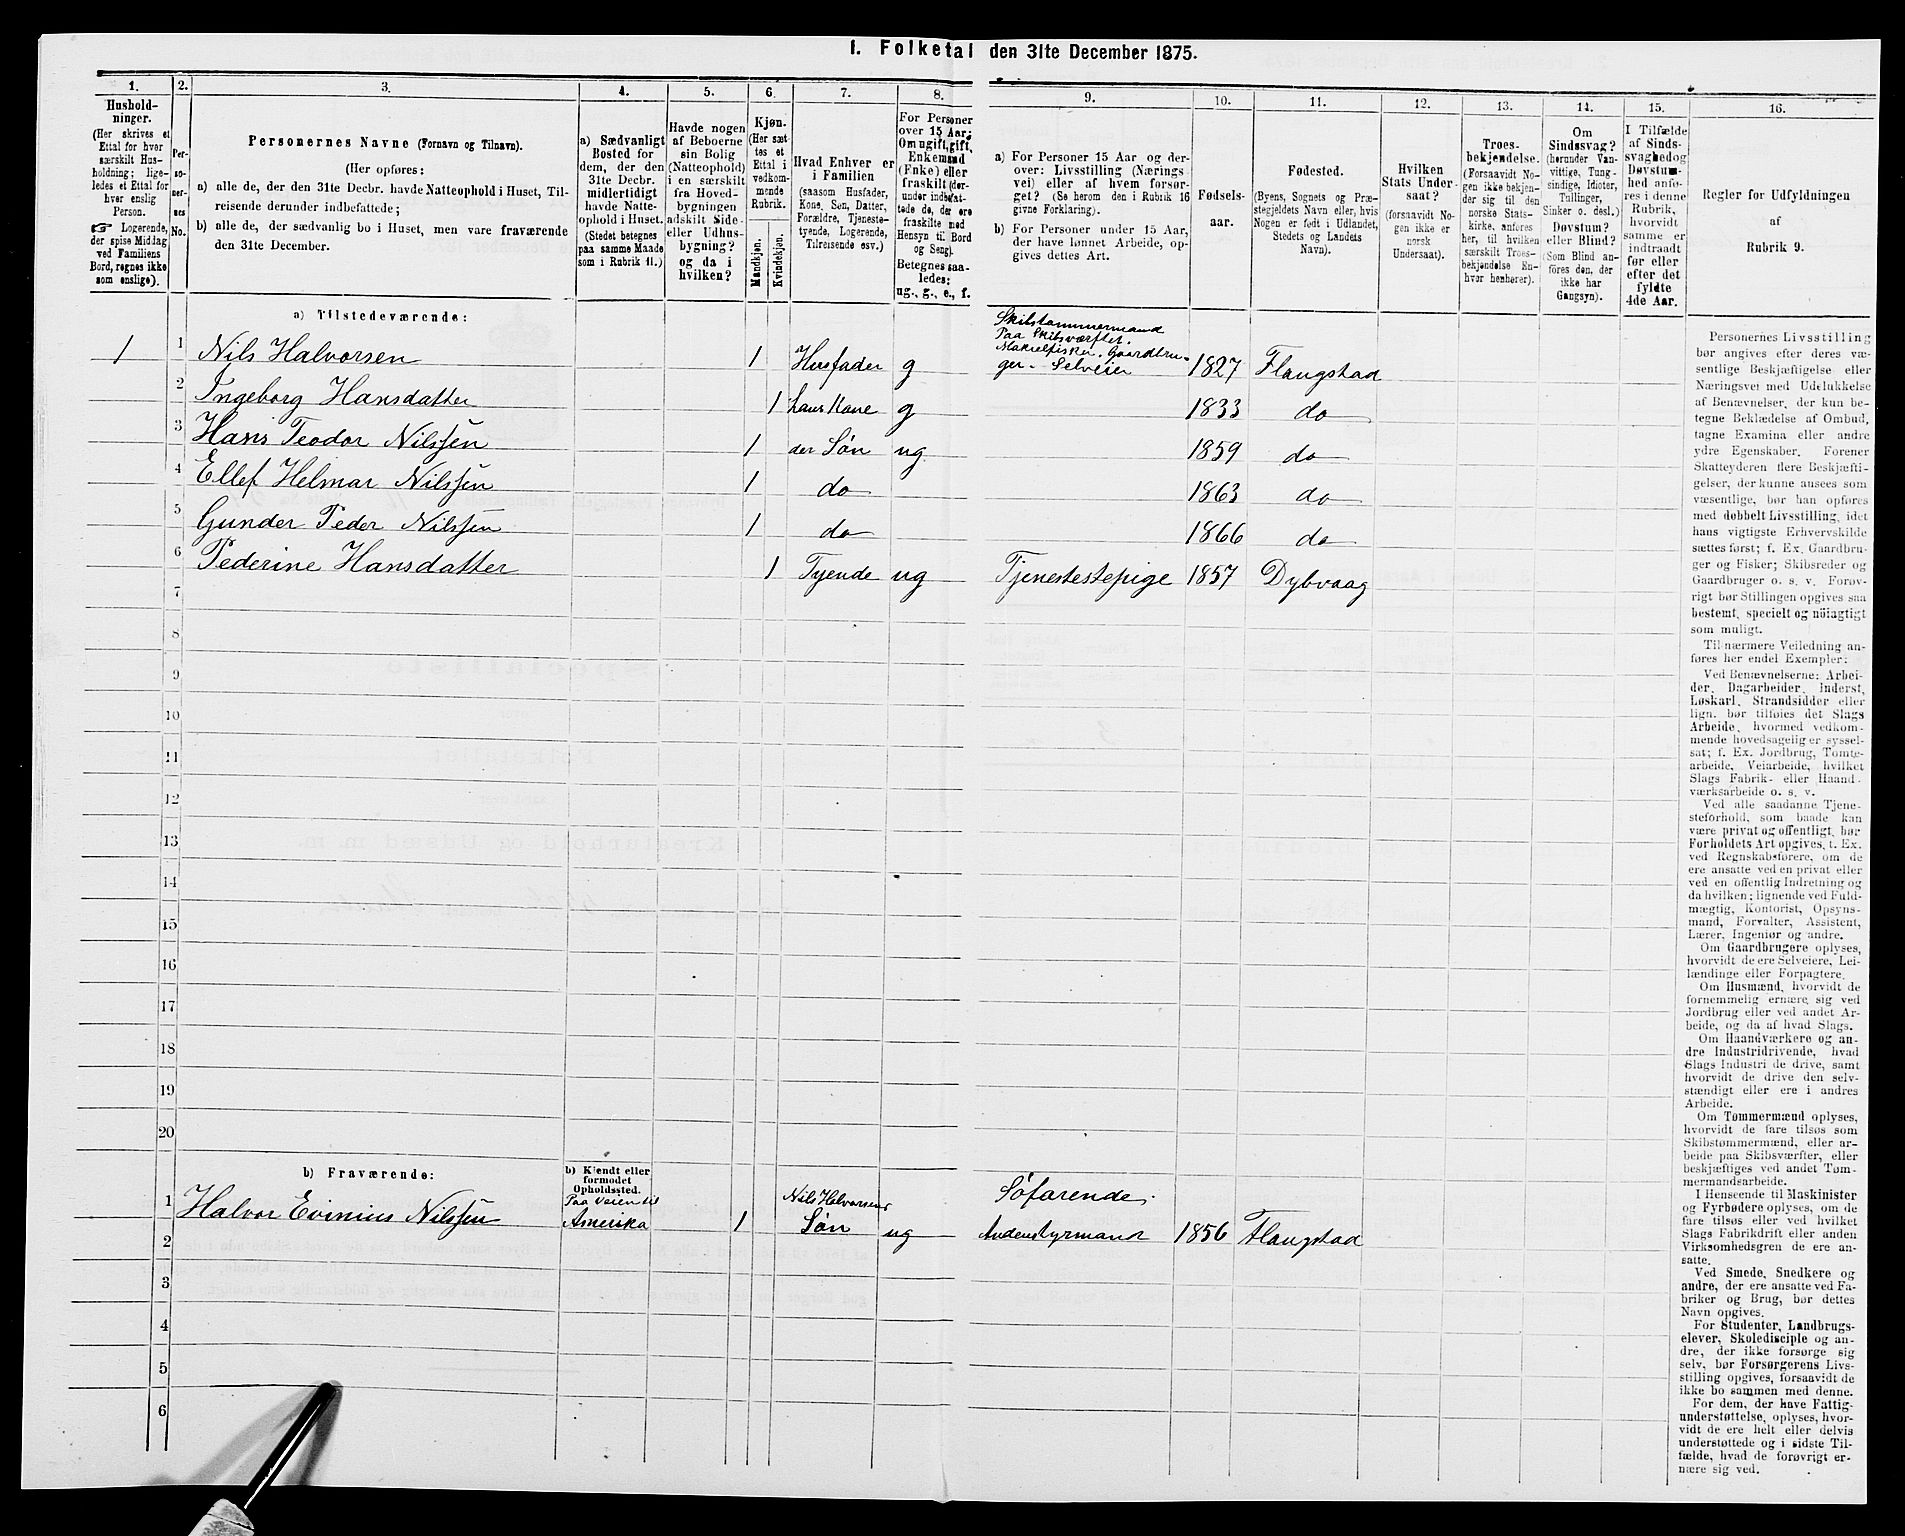 I. Folketal den 31te December 1875.
1.
Hushold-
ninger.
(Her skrives et
Ettal for hver
særskilt Hus-
holdning; lige-
ledes et Ettal for
hver enslig
Person.
☞ Logerende,
der spise Middag
ved Familiens
Bord, regnes ikke
som enslige).
2.
Per-
so-
ner-
nes
No.
3.
Personernes Navne (Fornavn og Tilnavn).
(Her opføres:
a) alle de, der den 31te Decbr. havde Natteophold i Huset, Til-
reisende derunder indbefattede;
b) alle de, der sædvanlig bo i Huset, men vare fraværende
den 31te December.
4.
a) Sædvanligt
Bosted for
dem, der den
31te Decbr.
midlertidigt
havde Natte-
ophold i Huset.
(Stedet betegnes
paa samme Maade
som i Rubrik 11.)
5.
Havde nogen
af Beboerne
sin Bolig
(Natteophold)
i en særskilt
fra Hoved-
bygningen
adskilt Side-
eller Udhus-
bygning?
og da i
hvilken?
6.
Kjøn.
(Her sæt-
tes et
Ettal i
vedkom-
mende
Rubrik.
Mandkjøn.
Kvindekjøn.
7.
Hvad Enhver er
i Familien
(saasom Husfader,
Kone, Søn, Datter,
Forældre, Tjeneste-
tyende, Logerende,
Tilreisende osv.)
8.
For Personer
over 15 Aar:
Om ugift, gift,
Enkemand
(Enke) eller
fraskilt (der-
under indbefat-
tede de, der ere
fraskilte med
Hensyn til Bord
og Seng).
Betegnes saa-
ledes:
ug., g., e., f.
9.
a) For Personer 15 Aar og der-
over: Livsstilling (Nærings-
vei) eller af hvem forsør-
get? (Se herom den i Rubrik 16
givne Forklaring).
b) For Personer under 15 Aar,
der have lønnet Arbeide, op-
gives dettes Art.
10.
Fødsels-
aar.
11.
Fødested.
(Byens, Sognets og Præ-
stegjeldets Navn eller, hvis
Nogen er født i Udlandet,
Stedets og Landets
Navn).
12.
Hvilken
Stats Under-
saat?
(forsaavidt No-
gen ikke er
norsk
Undersaat).
13.
Troes-
bekjendelse.
(Forsaavidt No-
gen ikke bekjen-
der sig til den
norske Stats-
kirke, anføres
her, til hvilken
særskilt Troes-
bekjendelse En-
hver henhører).
14.
Om
Sindssvag?
(herunder Van-
vittige, Tung-
sindige, Idioter,
Tullinger,
Sinker o. desl.)
Døvstum?
eller Blind?
(Som Blind an-
føres den, der
ikke har
Gangsyn).
15.
I Tilfælde
af Sinds-
svaghed og
Døvstum-
hed anfø-
res i denne
Rubrik,
hvorvidt
samme er
indtraadt
før eller
efter det
fyldte
4de Aar.
16.
Regler for Udfyldningen
af
Rubrik 9.
a) Tilstedeværende:
Skibstømmermand
Paa Skibsværftet.
Makrelfisker. Gaardbru-
1 1 Nils Halvorsen 1 Husfader g ger. Selveier 1827 Flaugstad
2 Ingeborg Hansdatter 1 hans Kone g 1833 do
3 Hans Teodor Nilssen 1 der Søn ug 1859 do
4 Ellef Helmar Nilssen 1 do 1863 do
5 Gunder Peder Nilssen 1 do 1866 do
6 Pederine Hansdatter 1 Tyende ug Tjenestestepige 1857 Dybvaag
7
8
9
10
11
12
13
14
15
16
17
18
19
20
b) Fraværende:
b) Kjendt eller
formodet
Opholdssted.
Paa Veien til Nils Halvorsens Søfarende.
1 Halvor Evinius Nilssen Amerika 1 Søn ug Andenstyrmand 1856 Flaugstad
2
3
4
5
6
Personernes Livsstilling
bør angives efter deres væ-
sentlige Beskjæftigelse eller
Næringsvei med Udelukkelse
af Benævnelser, der kun be-
tegne Beklædelse af Ombud,
tagne Examina eller andre
ydre Egenskaber. Forener
Skatteyderen flere Beskjæfti-
gelser, der kunne ansees som
væsentlige, bør han opføres
med dobbelt Livsstilling, idet
hans vigtigste Erhvervskilde
sættes først; f. Ex. Gaardbru-
ger og Fisker; Skibsreder og
Gaardbruger o. s. v. Forøv-
rigt bør Stillingen opgives saa
bestemt, specielt og nöiagtigt
som muligt.
Til nærmere Veiledning an-
føres her endel Exempler:
Ved Benævnelserne: Arbei-
der, Dagarbeider, Inderst,
Løskarl, Strandsidder eller
lign. bør tilføies det Slags
Arbeide, hvormed vedkom-
mende hovedsagelig er syssel-
sat; f. Ex. Jordbrug, Tomte-
arbeide, Veiarbeide, hvilket
Slags Fabrik- eller Haand-
værksarbeide o. s. v.
Ved alle saadanne Tjene-
steforhold, som baade kan
være privat og offentligt, bør
Forholdets Art opgives, f. Ex.
ved Regnskabsførere, om de
ere ansatte ved en privat eller
ved en offentlig Indretning og
da hvilken; lignende ved Fuld-
mægtig, Kontorist, Opsyns-
mand, Forvalter, Assistent,
Lærer, Ingeniør og andre.
Om Gaardbrugere oplyses,
hvorvidt de ere Selveiere, Lei-
lændinge eller Forpagtere.
Om Husmænd, hvorvidt de
fornemmelig ernære sig ved
Jordbrug eller ved andet Ar-
beide, og da af hvad Slags.
Om Haandværkere og an-
dre Industridrivende, hvad
Slags Industri de drive, samt
hvorvidt de drive den selv-
stændigt eller ere i andres
Arbeide.
Om Tømmermænd oplyses,
hvorvidt de fare tilsøs som
Skibstømmermænd, eller ar-
beide paa Skibsværfter, eller
beskjæftiges ved andet Tøm-
mermandsarbeide.
I Henseende til Maskinister
og Fyrbødere oplyses, om de
fare tilsøs eller ved hvilket
Slags Fabrikdrift eller anden
Virksomhedsgren de ere an-
satte.
Ved Smede, Snedkere og
andre, der ere ansatte ved Fa-
briker og Brug, bør dettes
Navn opgives.
For Studenter, Landbrugs-
elever, Skoledisciple og an-
dre, der ikke forsørge sig
selv, bør Forsørgerens Livs-
stilling opgives, forsaavidt de
ikke bo sammen med denne.
For dem, der have Fattig-
understøttelse, oplyses, hvor-
vidt de ere helt eller delvis
understøttede og i sidste Til-
fælde, hvad de forøvrigt er-
nære sig ved.